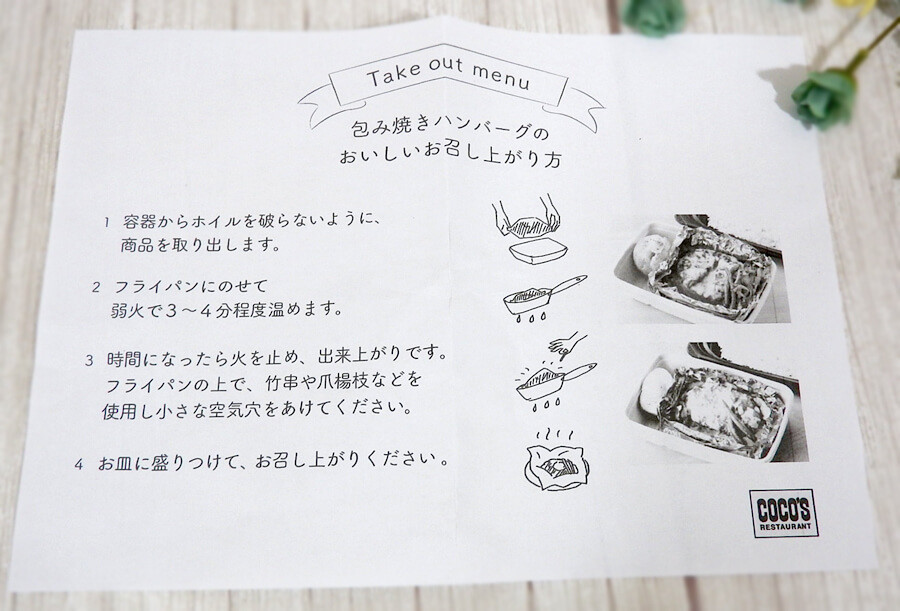 Take out menu
包み焼きハンバーグの
おいしいお召し上がり方
1 容器からホイルを破らないように、
商品を取り出します。
2 フライパンにのせて
弱火で3～4分程度温めます。
3 時間になったら火を止め、出来上がりです。
フライパンの上で、竹串や爪楊枝などを
使用し小さな空気穴をあけてください。
4 お皿に盛りつけて、お召し上がりください。
COCO'S
RESTAURANT